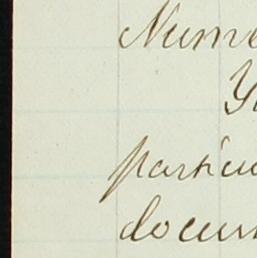 Nume
Yo
particu
docum